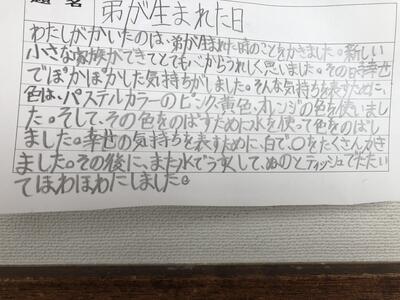 題名 弟が生まれた日
わたしがかいたのは、弟が生まれた時のことをかきました。新しい
小さな家族ができてとてもべからうれしく思いました。その時幸せ
でぽかぽかした気持ちがしました。そんな気持を表すために、
色は、パステルカラーのピンク、黄色、オレンジの色を使いまし
た。そして、その色をのばすために水を使って色をのばし
ました。幸せの気持ちを表すために、白で、〇をたくさんかき
ました。その後に、また水でうすくして、ぬのとティッシュでたたい
てほわほわにしました。